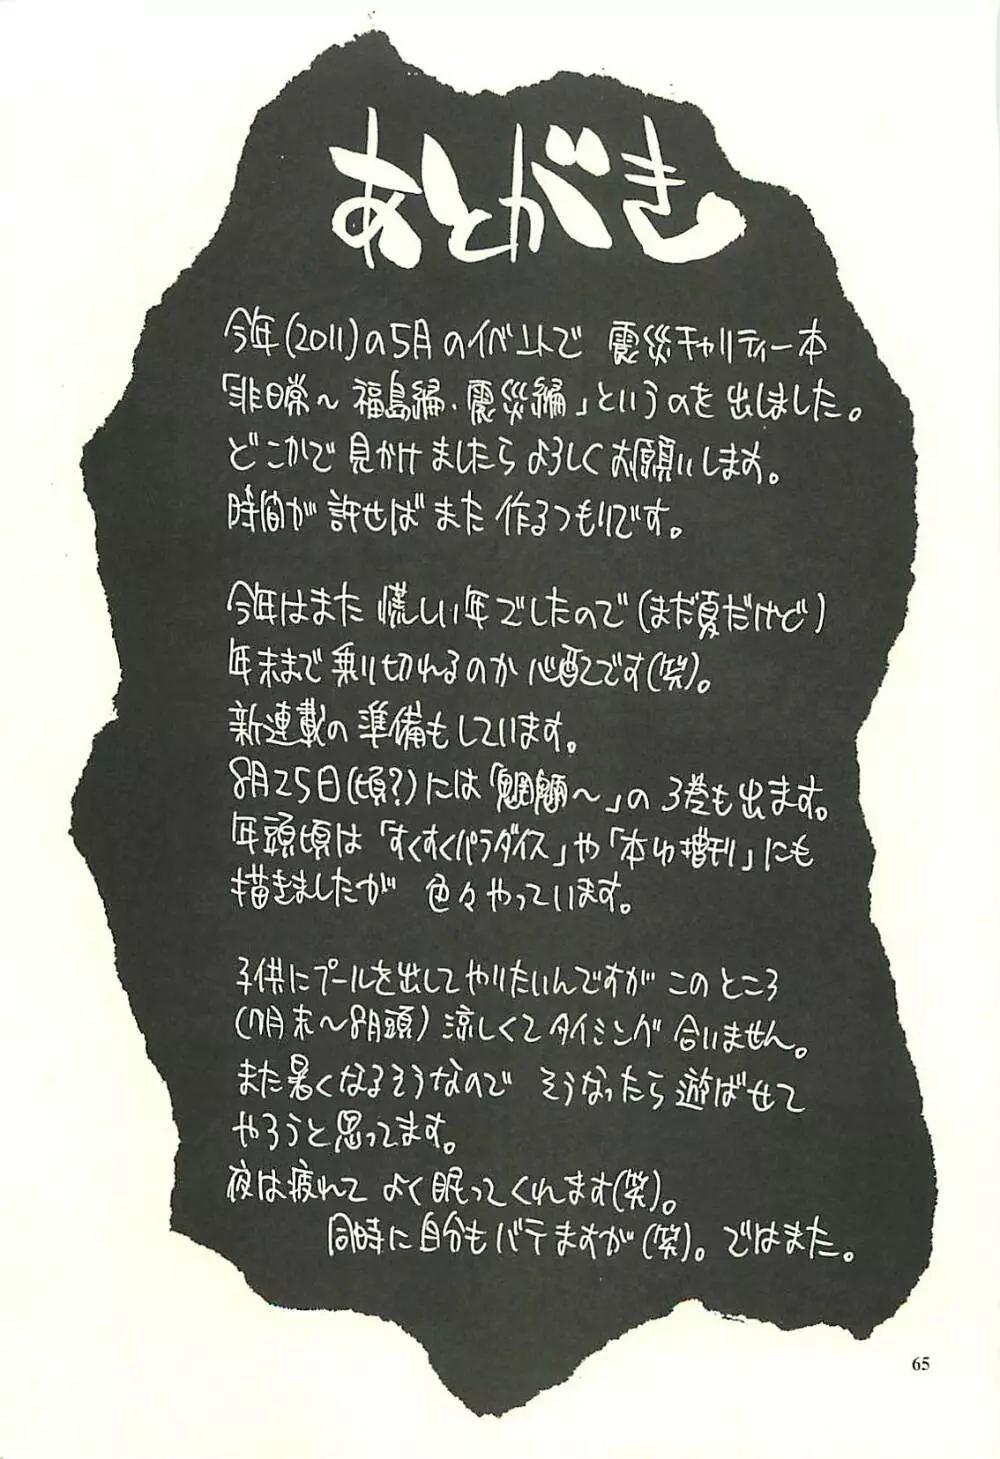 あとがき
今年(2011)の5月のイベントで 震災チャリティー本
「非日常～福島編、震災編」というのを出しました。
どこかで見かけましたらよろしくお願いします。
時間が許せばまた作るつもりです。
今年はまた慌しい年でしたので(まだ夏だけど)
年末まで乗り切れるのか心配です(笑)。
新連載の準備もしています。
8月25日(頃?)には「魍魎～」の3巻も出ます。
年頭頃は「すくすくパラダイス」や「本ゆ増刊」にも
描きましたが 色々やっています。
子供にプールを出してやりたいんですがこのところ
(7月末～8月頭)涼しくてタイミング合いません。
また暑くなるそうなので そうなったら遊ばせて
やろうと思ってます。
夜は疲れて よく眠ってくれます(笑)。
同時に自分もバテますが(笑)。ではまた。
65